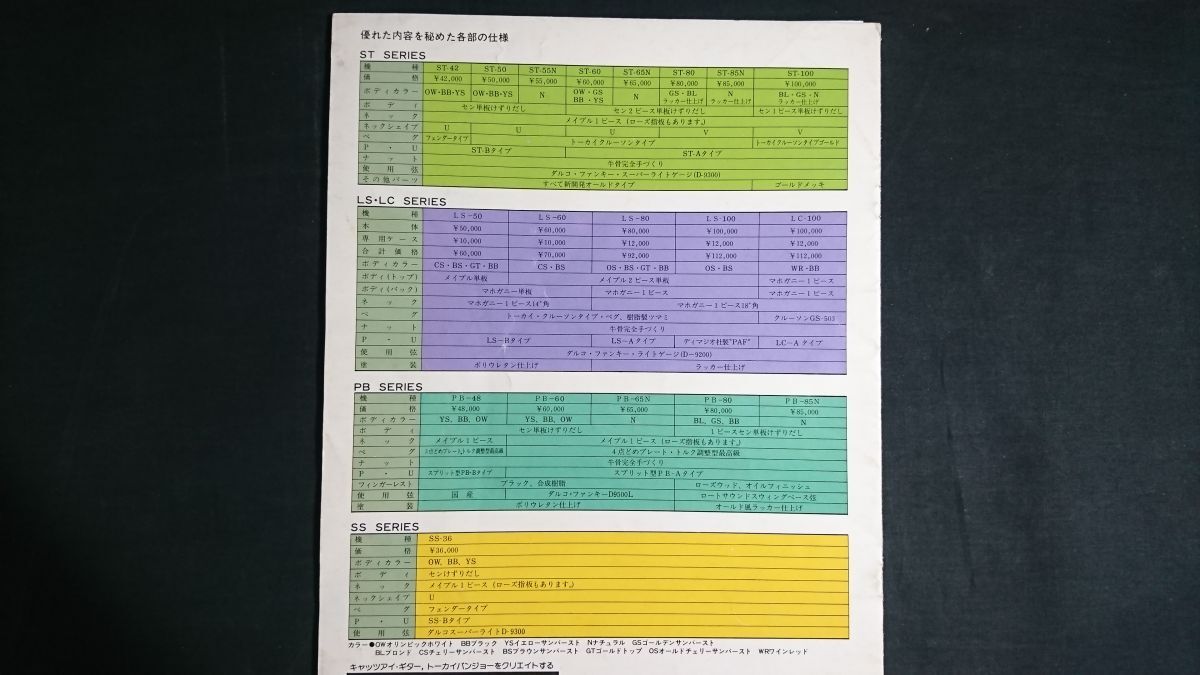 優れた内容を秘めた各部の仕様
ST SERIES
機種 ST-42 ST-50 ST-55N ST-60 ST-65N ST-80 ST-85N ST-100
価格 ¥42,000 ¥50,000 ¥55,000 ¥60,000 ¥65,000 ¥80,000 ¥85,000 ¥100,000
ボディカラー OW・BB・YS OW・BB・YS N OW・GS BB・YS N GS・BL ラッカー仕上げ N ラッカー仕上げ BL・GS・N ラッカー仕上げ
ボディ セン単板けずりだし セン2ピース単板けずりだし セン1ピース単板けずりだし
ネック メイプル1ピース(ローズ指板もあります。)
ネックシェイプ U U U V V
ペグ フェンダータイプ トーカイクルーソンタイプ トーカイクルーソンタイプゴールド
P・U ST-Bタイプ ST-Aタイプ
ナット 牛骨完全手づくり
使用弦 ダルコ・ファンキー・スーパーライトゲージ(D-9300)
その他パーツ すべて新開発オールドタイプ ゴールドメッキ
LS・LC SERIES
機種 LS-50 LS-60 LS-80 LS-100 LC-100
本体 ¥50,000 ¥60,000 ¥80,000 ¥100,000 ¥100,000
専用ケース ¥10,000 ¥10,000 ¥12,000 ¥12,000 ¥12,000
合計価格 ¥60,000 ¥70,000 ¥92,000 ¥112,000 ¥112,000
ボディカラー CS・BS・GT・BB CS・BS OS・BS・GT・BB OS・BS WR・BB
ボディ(トップ) メイプル単板 メイプル2ピース単板 マホガニー1ピース
ボディ(バック) マホガニー単板 マホガニー1ピース マホガニー1ピース
ネック マホガニー1ピース14°角 マホガニー1ピース18°角
ペグ トーカイ・クルーソンタイプ・ペグ、樹脂製ツマミ クルーソンGS-503
ナット 牛骨完全手づくり
P・U LS-Bタイプ LS-Aタイプ ディマジオ社製"PAF" LC-Aタイプ
使用弦 ダルコ・ファンキー・ライトゲージ(D-9200)
塗装 ポリウレタン仕上げ ラッカー仕上げ
PB SERIES
機種 PB-48 PB-60 PB-65N PB-80 PB-85N
価格 ¥48,000 ¥60,000 ¥65,000 ¥80,000 ¥85,000
ボディカラー YS、BB、OW YS、BB、OW N BL、GS、BB N
ボディ セン単板けずりだし 1ピースセン単板けずりだし
ネック メイプル1ピース メイプル1ピース(ローズ指板もあります。)
ペグ 点どめプレート、トルク調整型最高級 4点どめプレート・トルク調整型最高級
ナット 牛骨完全手づくり
P・U スプリット型PB-Bタイプ スプリット型PB-Aタイプ
フィンガーレスト ブラック、合成樹脂 ローズウッド、オイルフィニッシュ
使用弦 国産 ダルコ・ファンキーD9500L ロートサウンドスウィングベース弦
塗装 ポリウレタン仕上げ オールド風ラッカー仕上げ
SS SERIES
機種 SS-36
価格 ¥36,000
ボディカラー OW、BB、YS
ボディ センけずりだし
ネック メイプル1ピース(ローズ指板もあります。)
ネックシェイプ U
ペグ フェンダータイプ
P・U SS-Bタイプ
使用弦 ダルコスーパーライトD-9300
カラー●OWオリンピックホワイト BBブラック YSイエローサンバースト Nナチュラル GSゴールデンサンバースト
BLブロンド CSチェリーサンバースト BSブラウンサンバースト GTゴールドトップ OSオールドチェリーサンバースト WRワインレッド
キャッツアイ・ギター,トーカイバンジョーをクリエイトする